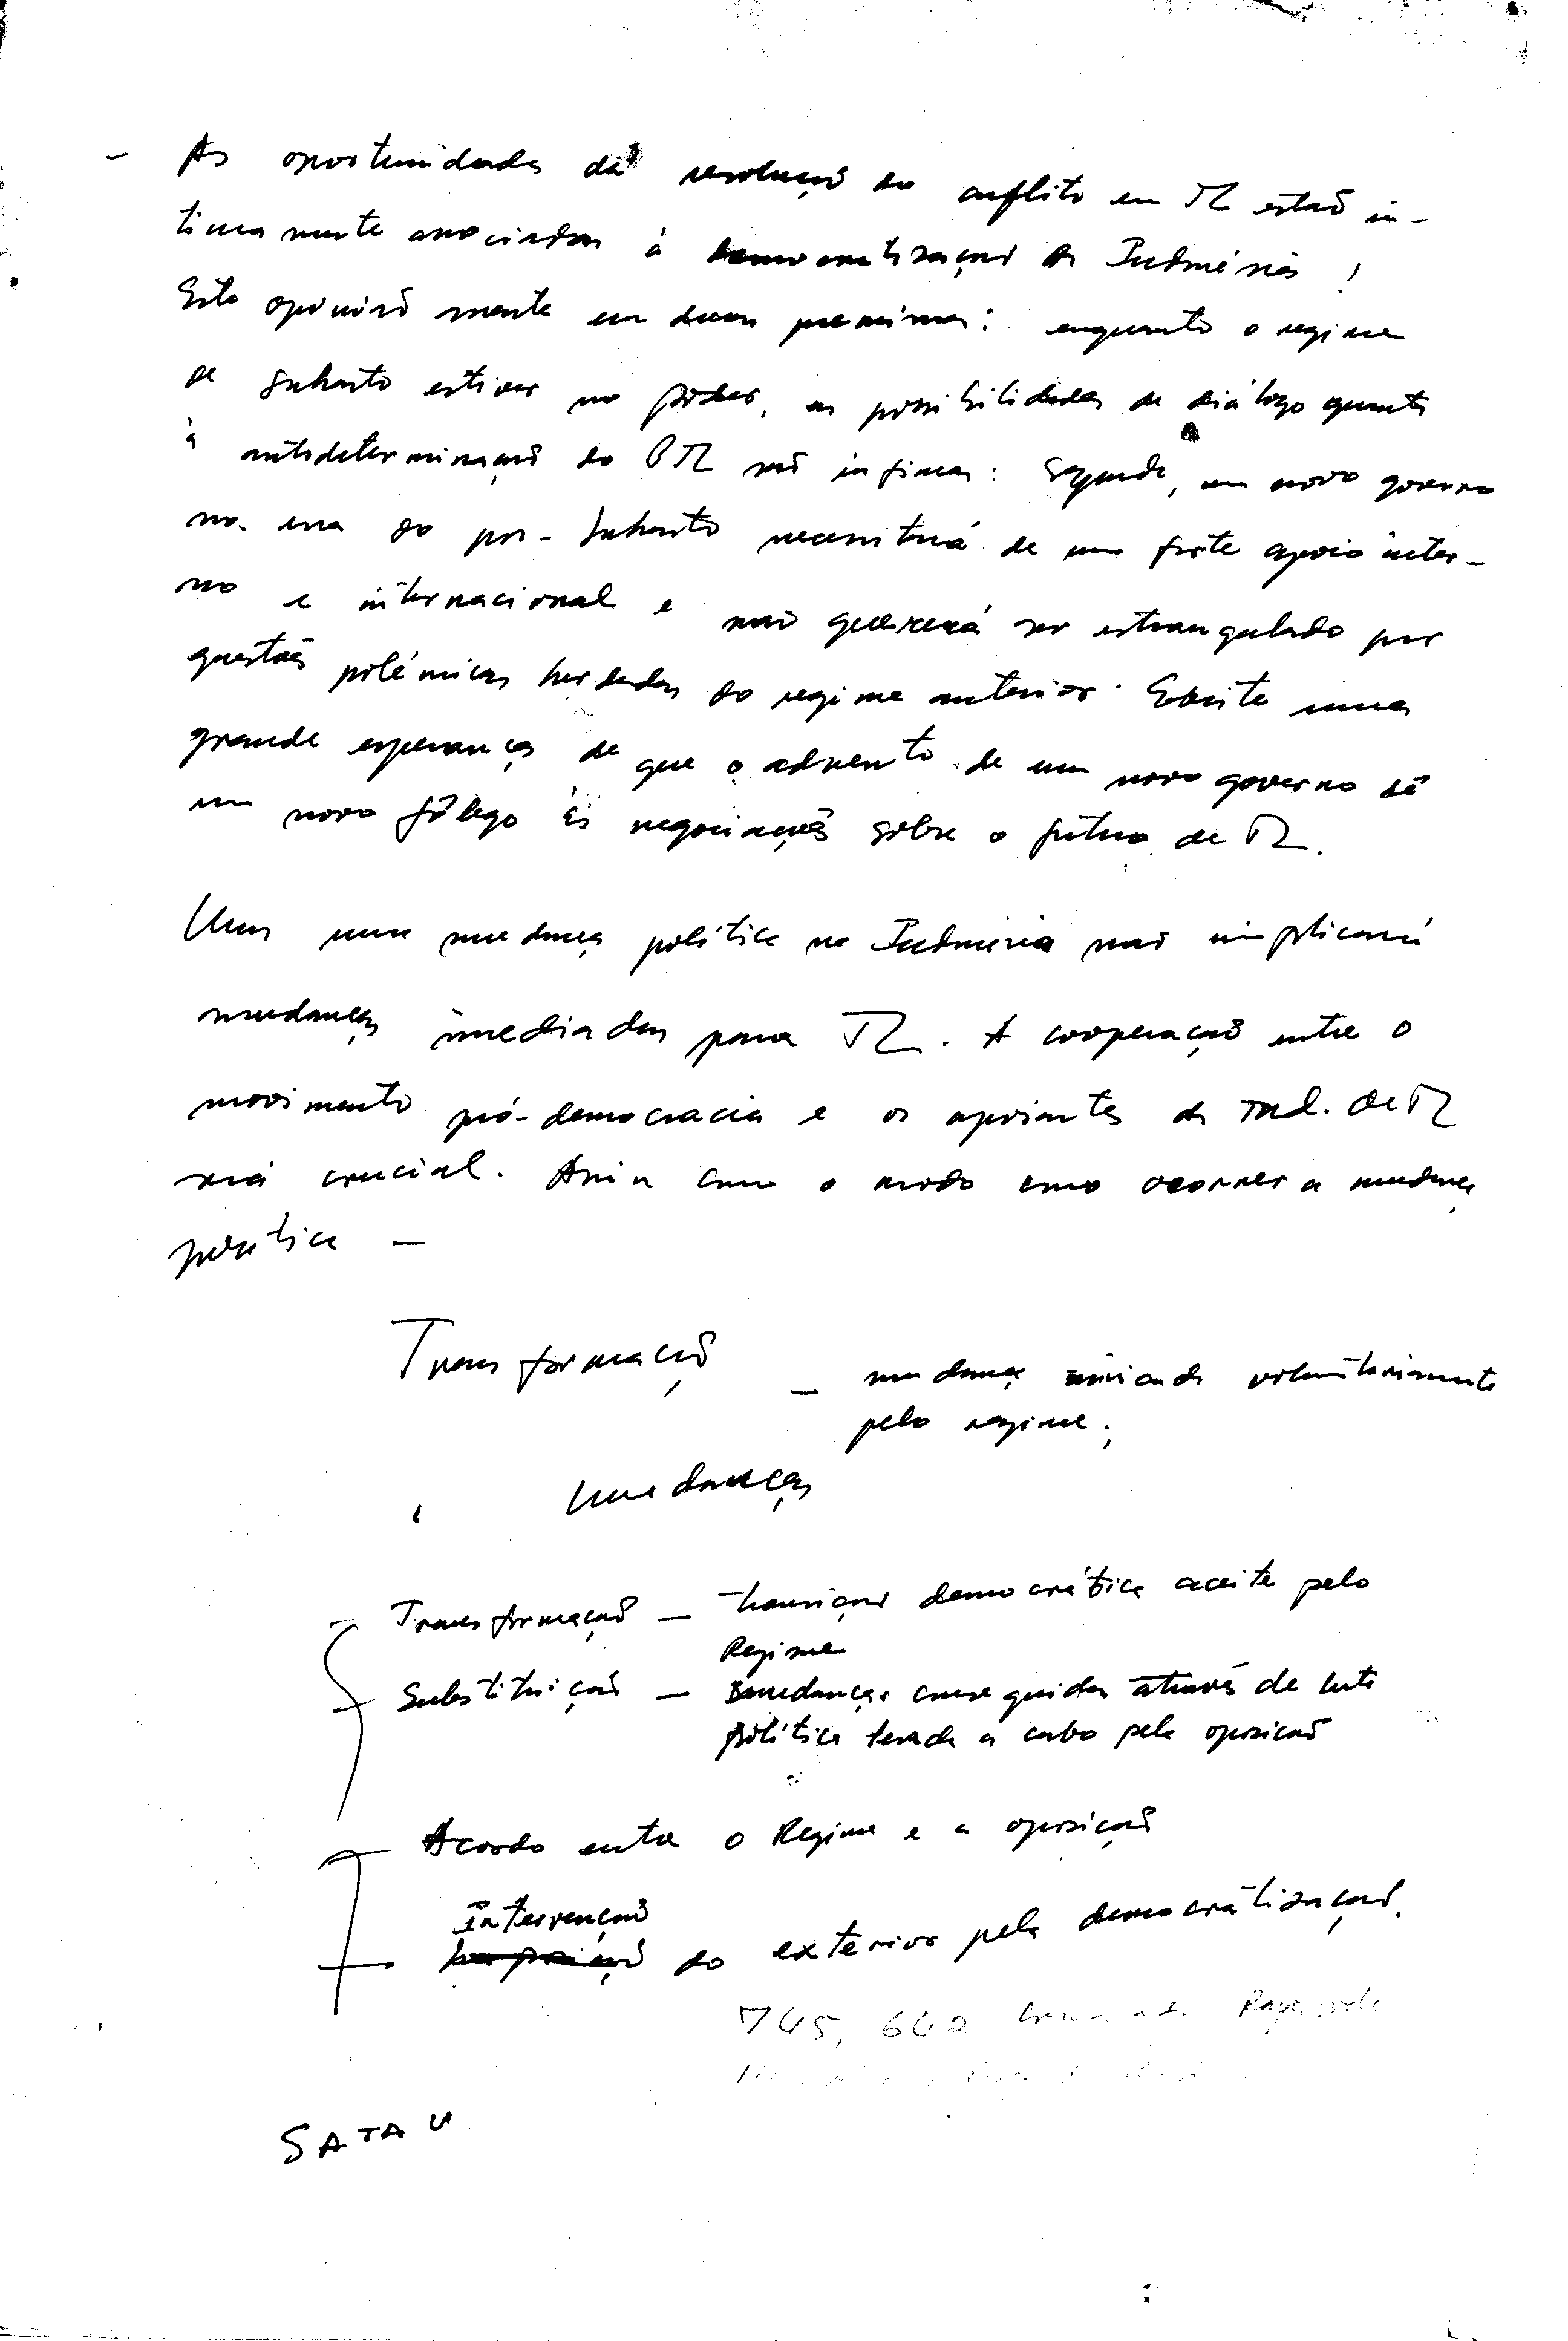 - As oportunidades da resolução do conflito em TL estão in-
timamente associadas à democratização da Indonésia!
Esta opinião assente em duas premissas: enquanto o regime
de Suharto estiver no poder, as possibilidades de diálogo quanto
à autodeterminação do PTL são ínfimas: Segunda, um novo governo
na era do pos-Suharto necessitará de um forte apoio inter-
no e internacional e não quererá ser estrangulado por
questões polémicas herdadas do regime anterior. Existe uma
grande esperança de que o advento de um novo governo dê
um novo fôlego às negociações sobre o futuro de TL.
Mas uma mudança política na Indonésia não implicará
mudanças imediatas para TL. A cooperação entre o
movimento pró-democracia e os apoiantes da Ind. de TL
será crucial. Assim como o modo como ocorrer a mudança
política -
Transformação - mudança iniciada voluntariamente
pelo regime;
Mudanças
- Transformação - transição democrática aceite pelo
Regime
- Substituição - mudanças conseguidas através de luta
política levada a cabo pela oposição
- Acordo entre o Regime e a oposição
Intervenção
- do exterior pela democratização.
745, 642
SATAU